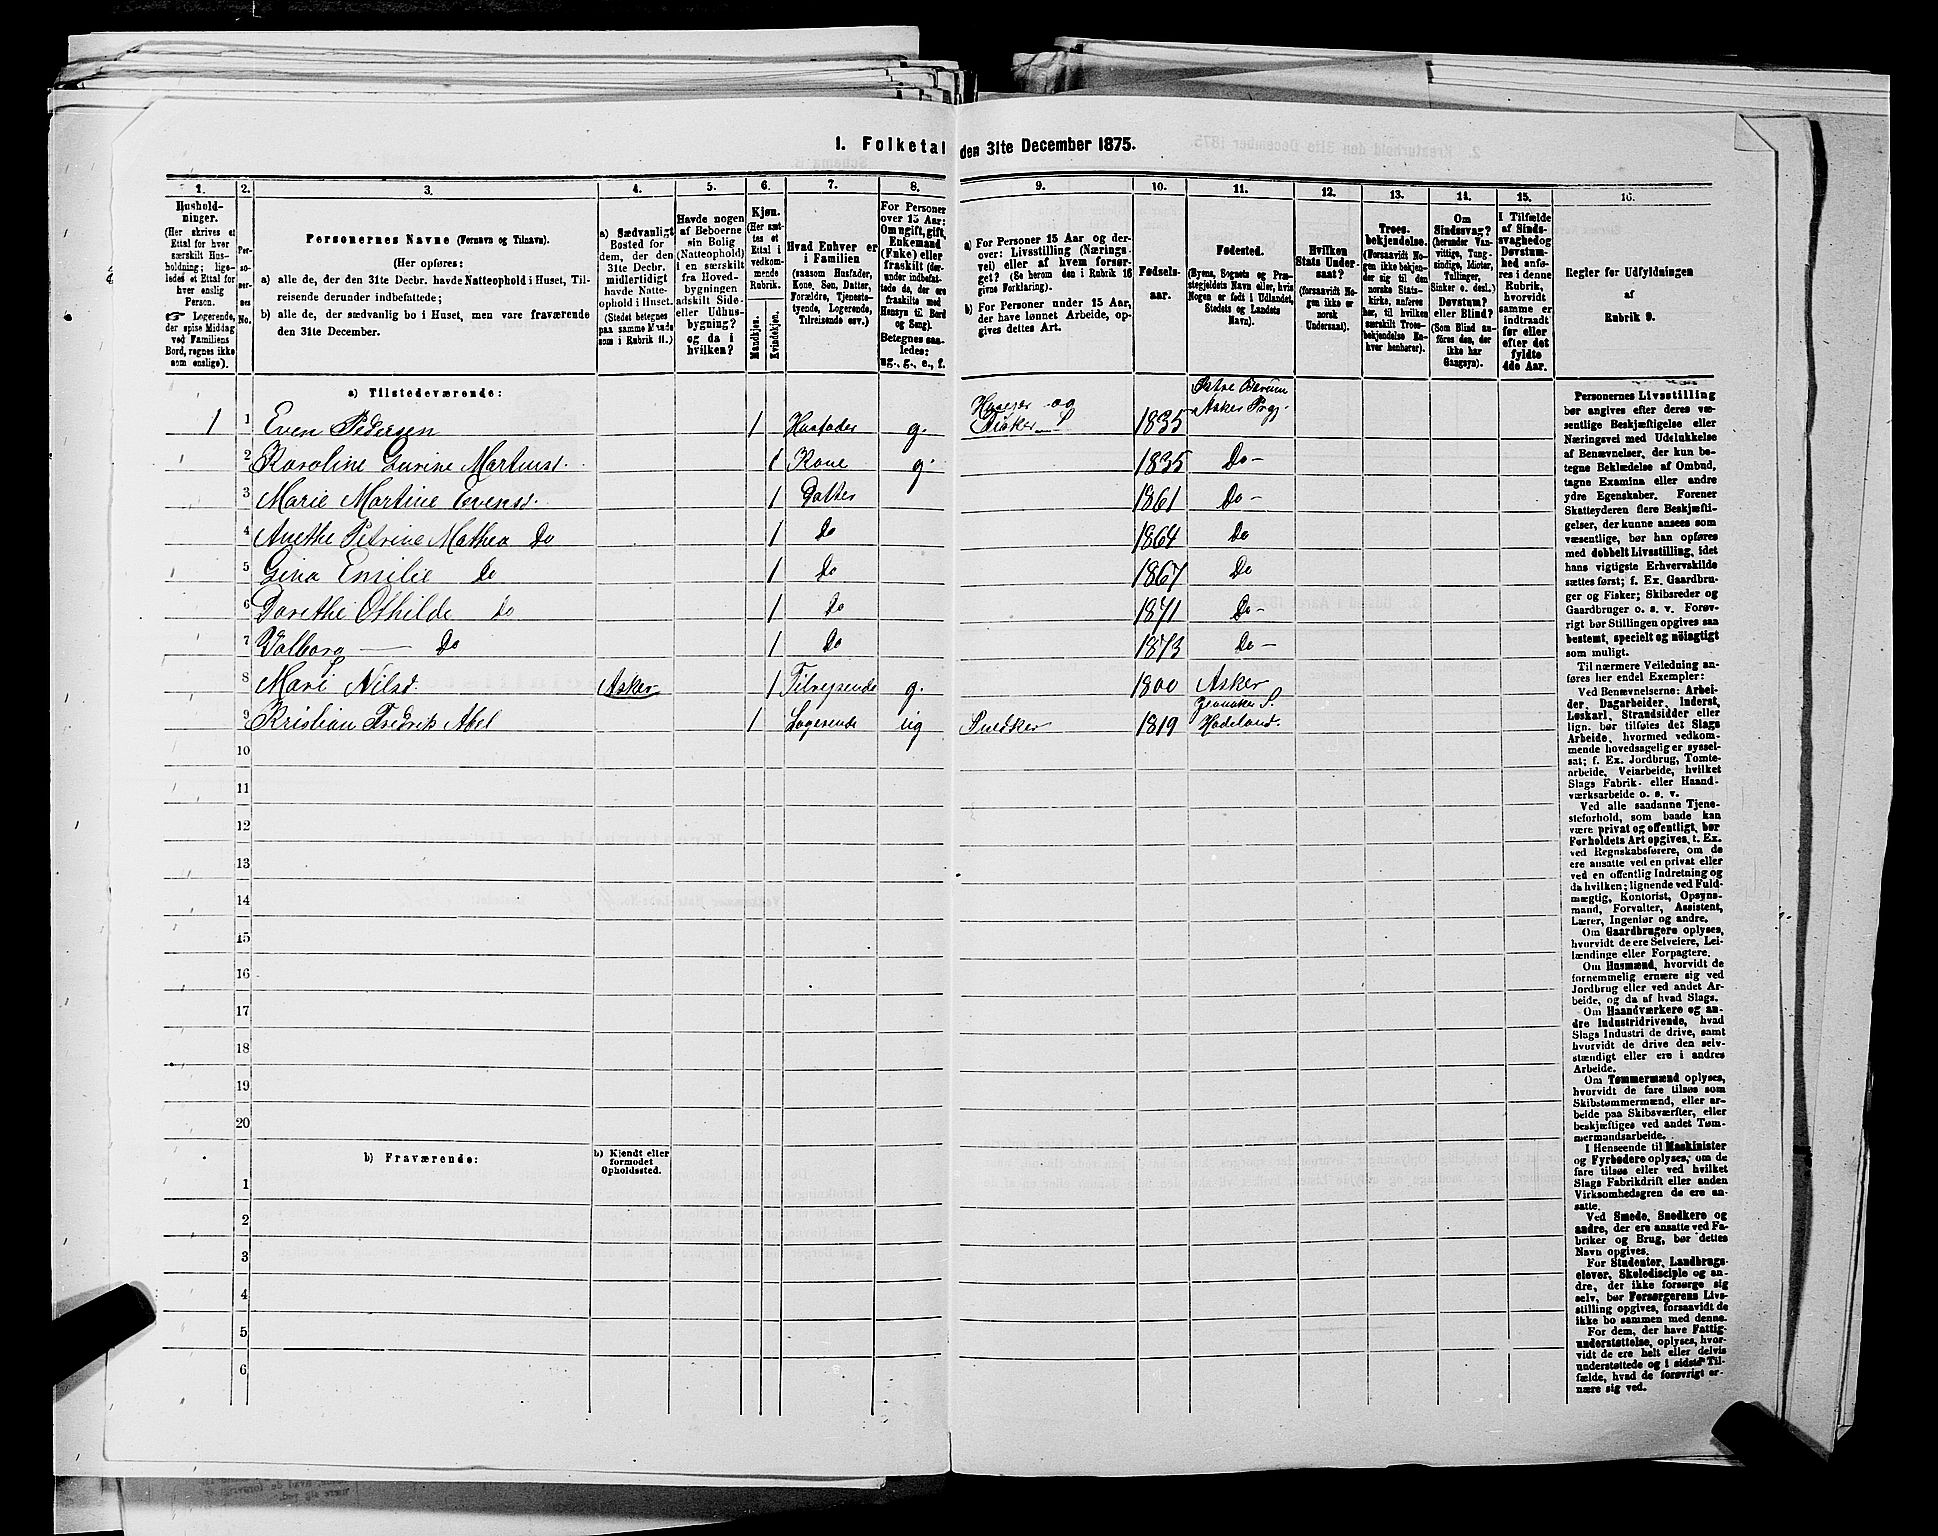 1. Folketal den 31te December 1875.
1. 2. 3. 4. 5. 6. 7. 8. 9. 10. 11. 12. 13. 14. 15. 16.
Husholdninger.
(Her skrives et
Ettal for hver
særskilt Husholdning;
ligeledes et Ettal for
hver enslig
Person.
☞ Logerende,
der spise Middag
ved Familiens
Bord, regnes ikke
som enslige).
Personernes No.
Personernes Navne (Fornavn og Tilnavn).
(Her opføres:
a) alle de, der den 31te Decbr. havde Natteophold i Huset, Tilreisende derunder indbefattede;
b) alle de, der sædvanlig bo i Huset, men vare fraværende
den 31te December.
a) Sædvanligt
Bosted for
dem, der den
31te Decbr.
midlertidigt
havde Natteophold
i Huset.
(Stedet betegnes
paa samme Maade
som i Rubrik 11.)
Havde nogen
af Beboerne
sin Bolig
(Natteophold)
i en særskilt
fra Hovedbygningen
adskilt Side-
eller Udhusbygning?
og da i
hvilken?
Kjøn.
(Her sættes
et
Ettal i
vedkommende
Rubrik.
Mandkjøn.
Kvindekjøn.
Hvad Enhver er
i Familien
(saasom Husfader,
Kone, Søn, Datter,
Forældre, Tjenestetyende,
Logerende,
Tilreisende osv.)
For Personer
over 15 Aar:
Om ugift, gift,
Enkemand
(Enke) eller
fraskilt (derunder
indbefattede
de, der ere
fraskilte med
Hensyn til Bord
og Seng).
Betegnes saaledes:
ug., g., e., f.
a) For Personer 15 Aar og derover:
Livsstilling (Næringsvei)
eller af hvem forsørget?
(Se herom den i Rubrik 16
givne Forklaring).
b) For Personer under 15 Aar,
der have lønnet Arbeide, opgives
dettes Art.
Fødselsaar.
Fødested.
(Byens, Sognets og Præstegjeldets
Navn eller, hvis
Nogen er født i Udlandet,
Stedets og Landets
Navn).
Hvilken
Stats Undersaat?
(forsaavidt Nogen
ikke er
norsk
Undersaat).
Troesbekjendelse.
(Forsaavidt Nogen
ikke bekjender
sig til den
norske Statskirke,
anføres
her, til hvilken
særskilt Troesbekjendelse
Enhver
henhører).
Om
Sindssvag?
(herunder Vanvittige,
Tungsindige,
Idioter,
Tullinger,
Sinker o. desl.)
Døvstum?
eller Blind?
(Som Blind anføres
den, der
ikke har
Gangsyn).
I Tilfælde
af Sindssvaghed
og
Døvstumhed
anføres
i denne
Rubrik,
hvorvidt
samme er
indtraadt
før eller
efter det
fyldte
4de Aar.
Regler for Udfyldningen
af
Rubrik 9.
a) Tilstedeværende:
1 1 Even Pedersen 1 Husfader g. Huseier og 1835 Østre Bærum Asker Prgj.
2 Karoline Gurine Martinsd. 1 Kone g. 1835 Do
3 Marie Martine Evensd. 1 Datter 1861 Do
4 Anethe Petrine Mathea Do 1 Do 1864 Do
5 Gina Emilie Do 1 Do 1867 Do
6 Dorethe Othilde Do 1 Do 1871 Do
7 Valborg Do 1 Do 1873 Do
8 Mari Nilsd. Asker 1 Tilreisende g. 1800 Asker
9 Kristian Fredrik Abel 1 Logerende ug Snedker 1819 Hadeland.
10
11
12
13
14
15
16
17
18
19
20
b) Fraværende:
b) Kjendt eller
formodet
Opholdssted.
1
2
3
4
5
6
Personernes Livsstilling
bør angives efter deres væsentlige
Beskjæftigelse eller
Næringsvei med Udelukkelse
af Benævnelser, der kun betegne
Beklædelse af Ombud,
tagne Examina eller andre
ydre Egenskaber. Forener
Skatteyderen flere Beskjæftigelser,
der kunne ansees som
væsentlige, bør han opføres
med dobbelt Livsstilling, idet
hans vigtigste Erhvervskilde
sættes først; f. Ex. Gaardbruger
og Fisker; Skibsreder og
Gaardbruger o. s. v. Forøvrigt
bør Stillingen opgives saa
bestemt, specielt og nøiagtigt
som muligt.
Til nærmere Veiledning anføres
her endel Exempler:
Ved Benævnelserne: Arbeider,
Dagarbeider, Inderst,
Løskarl, Strandsidder eller
lign. bør tilføies det Slags
Arbeide, hvormed vedkommende
hovedsagelig er sysselsat;
f. Ex. Jordbrug, Tomtearbeide,
Veiarbeide, hvilket
Slags Fabrik- eller Haandværksarbeide
o. s. v.
Ved alle saadanne Tjenesteforhold,
som baade kan
være privat og offentligt, bør
Forholdets Art opgives, t. Ex.
ved Regnskabsførere, om de
ere ansatte ved en privat eller
ved en offentlig Indretning og
da hvilken; lignende ved Fuldmægtig,
Kontorist, Opsynsmand,
Forvalter, Assistent,
Lærer, Ingeniør og andre.
Om Gaardbrugere oplyses,
hvorvidt de ere Selveiere, Leilændinge
eller Forpagtere.
Om Husmænd, hvorvidt de
fornemmelig ernære sig ved
Jordbrug eller ved andet Arbeide,
og da af hvad Slags.
Om Haandværkere og andre
Industridrivende, hvad
Slags Industri de drive, samt
hvorvidt de drive den selvstændigt
eller ere i andres
Arbeide.
Om Tømmermænd oplyses,
hvorvidt de fare tilsøs som
Skibstømmermænd, eller arbeide
paa Skibsværfter, eller
beskjæftiges ved andet Tømmermandsarbeide.
I Henseende til Maskinister
og Fyrbødere oplyses, om de
fare tilsøs eller ved hvilket
Slags Fabrikdrift eller anden
Virksomhedsgren de ere ansatte.
Ved Smede, Snedkere og
andre, der ere ansatte ved Fabriker
og Brug, bør dettes
Navn opgives.
For Studenter, Landbrugselever,
Skoledisciple og andre,
der ikke forsørge sig
selv, bør Forsørgerens Livsstilling
opgives, forsaavidt de
ikke bo sammen med denne.
For dem, der have Fattigunderstøttelse,
oplyses, hvorvidt
de ere helt eller delvis
understøttede og i sidste Tilfælde,
hvad de forøvrigt ernære
sig ved.